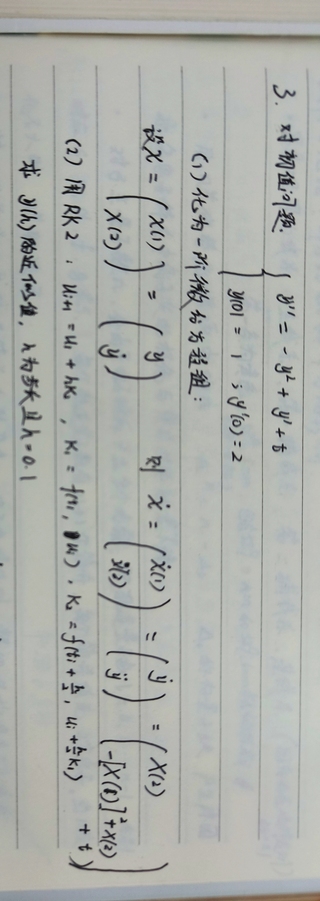 3. 对初值问题. { y'' = -y² + y' + t
y(0) = 1 ; y'(0) = 2
(1) 化为一阶微分方程组:
设 X = (X(1) X(2)) = (y ẏ) 则 Ẋ = (Ẋ(1) Ẋ(2)) = (ẏ ÿ) = (X(2) -[X(1)]² + X(2) + t)
(2) 用 RK2 : u_{i+1} = u_i + hK₂ , K₁ = f(t_i, u_i) , K₂ = f(t_i + h/2, u_i + h/2 K₁)
求 y(h) 的近似值, h为步长且 h = 0.1